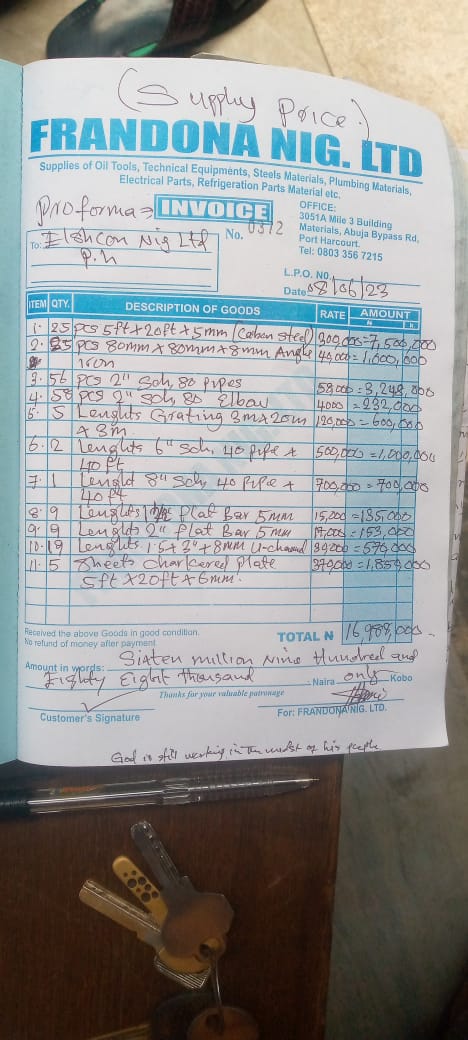 (Supply Price.)
FRANDONA NIG. LTD
Supplies of Oil Tools, Technical Equipments, Steels Materials, Plumbing Materials,
Electrical Parts, Refrigeration Parts Material etc.
Proforma INVOICE
No. 0312
OFFICE:
3051A Mile 3 Building
Materials, Abuja Bypass Rd,
Port Harcourt.
Tel: 0803 356 7215
To: Elshcon Nig Ltd
P.H
L.P.O. NO.
Date 08/06/23
ITEM QTY. DESCRIPTION OF GOODS RATE AMOUNT
N K
1. 25 pcs 5ft x 20ft x 5mm (Carbon Steel) 300,000 = 7,500,000
2. 25 pcs 80mm x 80mm x 8mm Angle
iron
3. 56 pcs 2" Sch, 80 pipes 58,000 = 3,248,000
4. 58 pcs 2" Sch, 80 Elbow 4000 = 232,000
5. 5 Lenghts Grating 3m x 20m 120,000 = 600,000
x 3m
6. 2 Lenghts 6" Sch, 40 pipe x 500,000 = 1,000,000
40ft
7. 1 Lenght 8" Sch, 40 pipe x 700,000 = 700,000
40ft
8. 9 Lenghts Plat Bar 5mm 15,000 = 135,000
9. 9 Lenghts 2" Plat Bar 5mm 17,000 = 153,000
10. 19 Lenghts 1.5 x 3" x 8mm U-channel
11. 5 Sheets Charkered Plate
5ft x 20ft x 6mm.
Received the above Goods in good condition.
No refund of money after payment.
TOTAL N 16,988,000
Amount in words: Sixteen million Nine Hundred and
Eighty Eight thousand Naira only Kobo
Thanks for your valuable patronage
Customer's Signature
For: FRANDONA NIG. LTD.
God is still working in the midst of his people